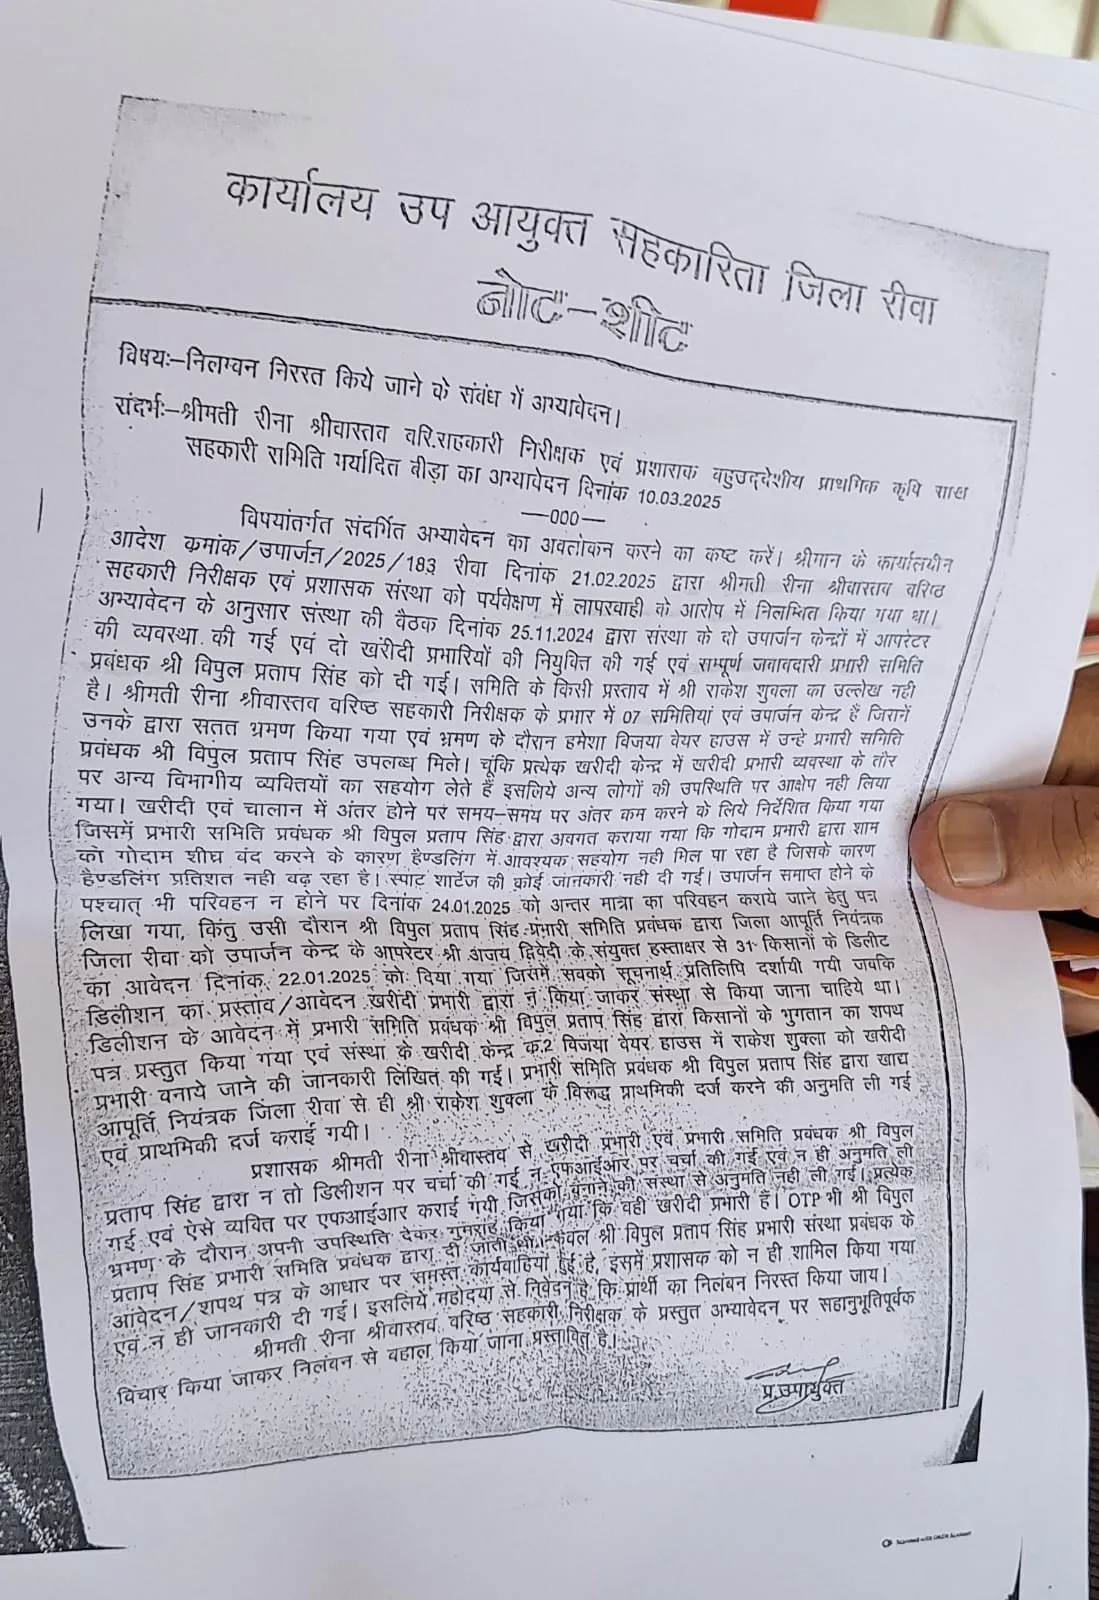 कार्यालय उप आयुक्त सहकारिता जिला रीवा
नोट-शीट
विषयः-निलम्वन निरस्त किये जाने के संबंध में अभ्यावेदन।
संदर्भः-श्रीमती रीना श्रीवास्तव वरि.सहकारी निरीक्षक एवं प्रशासक बहुउद्देशीय प्राथमिक कृषि साख
सहकारी समिति मर्यादित बीड़ा का अभ्यावेदन दिनांक 10.03.2025
—000—
विषयांतर्गत संदर्भित अभ्यावेदन का अवलोकन करने का कष्ट करें। श्रीमान के कार्यालयीन
आदेश क्रमांक/उपार्जन/2025/183 रीवा दिनांक 21.02.2025 द्वारा श्रीमती रीना श्रीवास्तव वरिष्ठ
सहकारी निरीक्षक एवं प्रशासक संस्था को पर्यवेक्षण में लापरवाही के आरोप में निलम्बित किया गया था।
अभ्यावेदन के अनुसार संस्था की वैठक दिनांक 25.11.2024 द्वारा संस्था के दो उपार्जन केन्द्रों में आपरेटर
की व्यवस्था की गई एवं दो खरीदी प्रभारियों की नियुक्ति की गई एवं सम्पूर्ण जवावदारी प्रभारी समिति
प्रबंधक श्री विपुल प्रताप सिंह को दी गई। समिति के किसी प्रस्ताव में श्री राकेश शुक्ला का उल्लेख नही
है। श्रीमती रीना श्रीवास्तव वरिष्ठ सहकारी निरीक्षक के प्रभार में 07 समितियां एवं उपार्जन केन्द्र हैं जिसमें
उनके द्वारा सतत भ्रमण किया गया एवं भ्रमण के दौरान हमेशा विजया वेयर हाउस में उन्हे प्रभारी समिति
प्रवंधक श्री विपुल प्रताप सिंह उपलब्ध मिले। चूंकि प्रत्येक खरीदी केन्द्र में खरीदी प्रभारी व्यवस्था के तौर
पर अन्य विभागीय व्यक्तियों का सहयोग लेते हैं इसलिये अन्य लोगों की उपस्थिति पर आक्षेप नही लिया
गया। खरीदी एवं चालान में अंतर होने पर समय-समय पर अंतर कम करने के लिये निर्देशित किया गया
जिसमें प्रभारी समिति प्रवंधक श्री विपुल प्रताप सिंह द्वारा अवगत कराया गया कि गोदाम प्रभारी द्वारा शाम
को गोदाम शीघ्र वंद करने के कारण हैण्डलिंग में आवश्यक सहयोग नही मिल पा रहा है जिसके कारण
हैण्डलिंग प्रतिशत नही वढ़ रहा है। स्पाट शार्टेज की कोई जानकारी नही दी गई। उपार्जन समाप्त होने के
पश्चात् भी परिवहन न होने पर दिनांक 24.01.2025 को अन्तर मात्रा का परिवहन कराये जाने हेतु पत्र
लिखा गया, किंतु उसी दौरान श्री विपुल प्रताप सिंह प्रभारी समिति प्रवंधक द्वारा जिला आपूर्ति नियंत्रक
जिला रीवा को उपार्जन केन्द्र के आपरेटर श्री अंजय द्विवेदी के संयुक्त हस्ताक्षर से 31 किसानों के डिलीट
का आवेदन दिनांक 22.01.2025 को दिया गया जिसमें सवको सूचनार्थ प्रतिलिपि दर्शायी गयी जवकि
डिलीशन का प्रस्ताव/आवेदन खरीदी प्रभारी द्वारा न किया जाकर संस्था से किया जाना चाहिये था।
डिलीशन के आवेदन में प्रभारी समिति प्रवंधक श्री विपुल प्रताप सिंह द्वारा किसानों के भुगतान का शपथ
पत्र प्रस्तुत किया गया एवं संस्था के खरीदी केन्द्र क्र.2 विजया वेयर हाउस में राकेश शुक्ला को खरीदी
प्रभारी वनाये जाने की जानकारी लिखित की गई। प्रभारी समिति प्रबंधक श्री विपुल प्रताप सिंह द्वारा खाद्य
आपूर्ति नियंत्रक जिला रीवा से ही श्री राकेश शुक्ला के विरूद्ध प्राथमिकी दर्ज करने की अनुमति ली गई
एवं प्राथमिकी दर्ज कराई गयी।
प्रशासक श्रीमती रीना श्रीवास्तव से खरीदी प्रभारी एवं प्रभारी समिति प्रवंधक श्री विपुल
प्रताप सिंह द्वारा न तो डिलीशन पर चर्चा की गई न एफआईआर पर चर्चा की गई एवं न ही अनुमति ली
गई एवं ऐसे व्यक्ति पर एफआईआर कराई गयी जिसको वनाने की संस्था से अनुमति नही ली गई। प्रत्येक
भ्रमण के दौरान अपनी उपस्थिति देकर गुमराह किया गया कि वही खरीदी प्रभारी हैं। OTP भी श्री विपुल
प्रताप सिंह प्रभारी समिति प्रवंधक द्वारा दी जाती थी। केवल श्री विपुल प्रताप सिंह प्रभारी संस्था प्रबंधक के
आवेदन/शपथ पत्र के आधार पर समस्त कार्यवाहियां हुई है, इसमें प्रशासक को न ही शामिल किया गया
एवं न ही जानकारी दी गई। इसलिये महोदया से निवेदन है कि प्रार्थी का निलंबन निरस्त किया जाय।
श्रीमती रीना श्रीवास्तव वरिष्ठ सहकारी निरीक्षक के प्रस्तुत अभ्यावेदन पर सहानुभूतिपूर्वक
विचार किया जाकर निलंवन से वहाल किया जाना प्रस्तावित है।
प्र.उपायुक्त
Scanned with OKEN Scanner